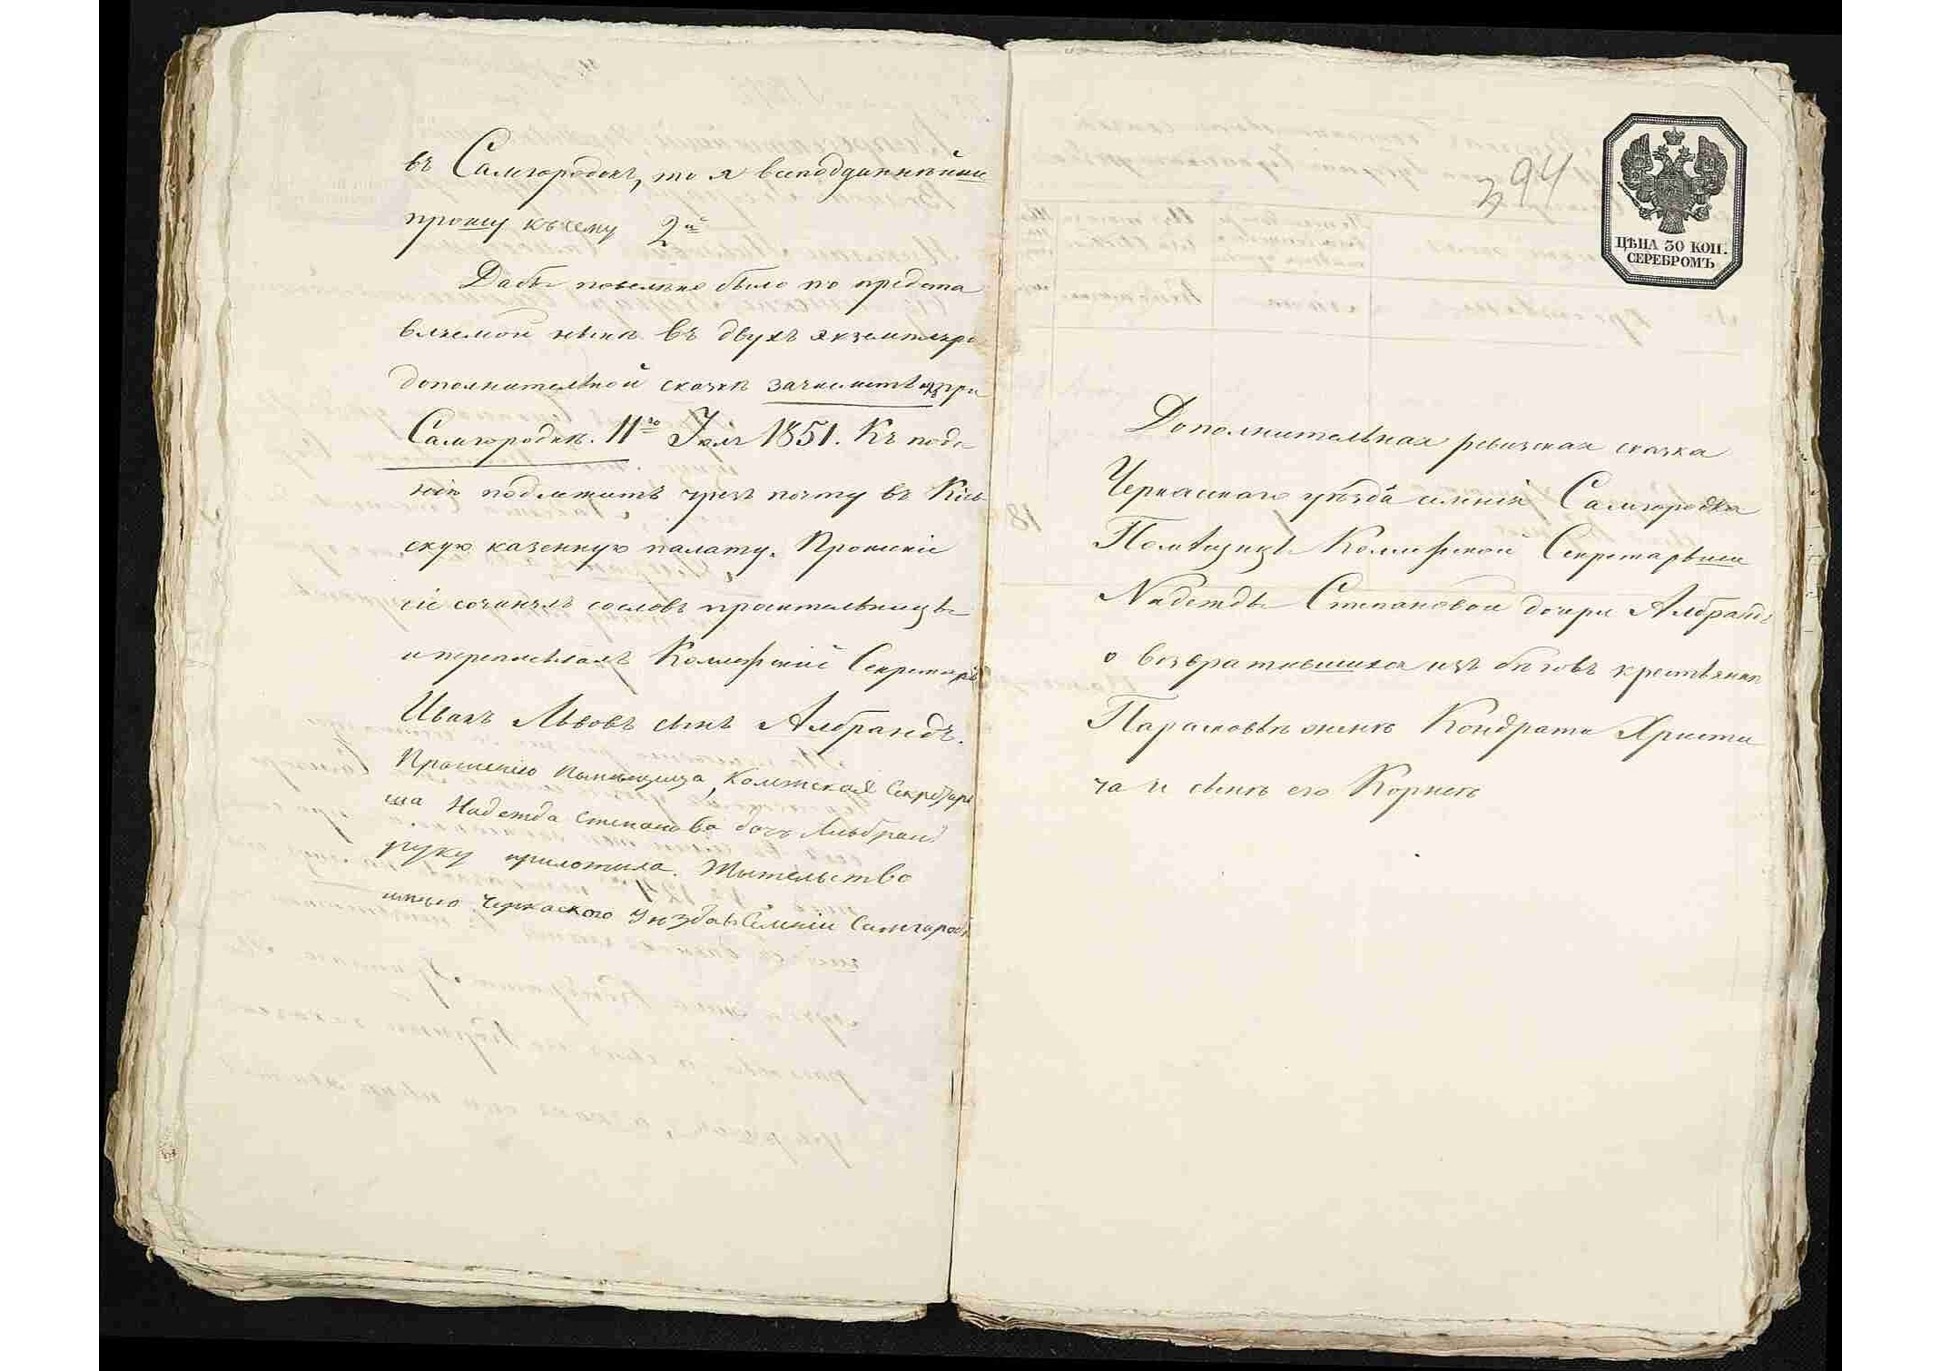 въ Самгородокъ, то я всеподданнѣйше
прошу къ сему 2й
Дабы повелено было по предста
вляемой мною въ двухъ экземпляра
дополнительной сказкѣ зачислить при
Самгородкѣ. 11го Іюля 1851. Къ пода
нію подлежитъ чрезъ почту въ Кіев
скую казенную палату. Прошеніе
сіе сочинялъ со словъ просительницы
и переписывалъ Коллежскій Секретарь
Иванъ Львовъ сынъ Албрандъ.
Прошенію помещица, Колежская Секретар
ша Надежда Степанова дочь Альбранд
руку приложила. Жытельство
имею Черкаского уѣзда въ Селеніи Самгародк
394
ЦѢНА 30 КОП.
СЕРЕБРОМЪ
Дополнительная ревизская сказка
Черкаскаго уѣзда селенія Самгородка
Помѣщицы Коллежской Секретарьши
Надежды Степановой дочери Албрандъ
о возвратившихся изъ бѣговъ крестьянкѣ
Парасковьи женѣ Кондрата Христи
ча и сынѣ его Корнеѣ